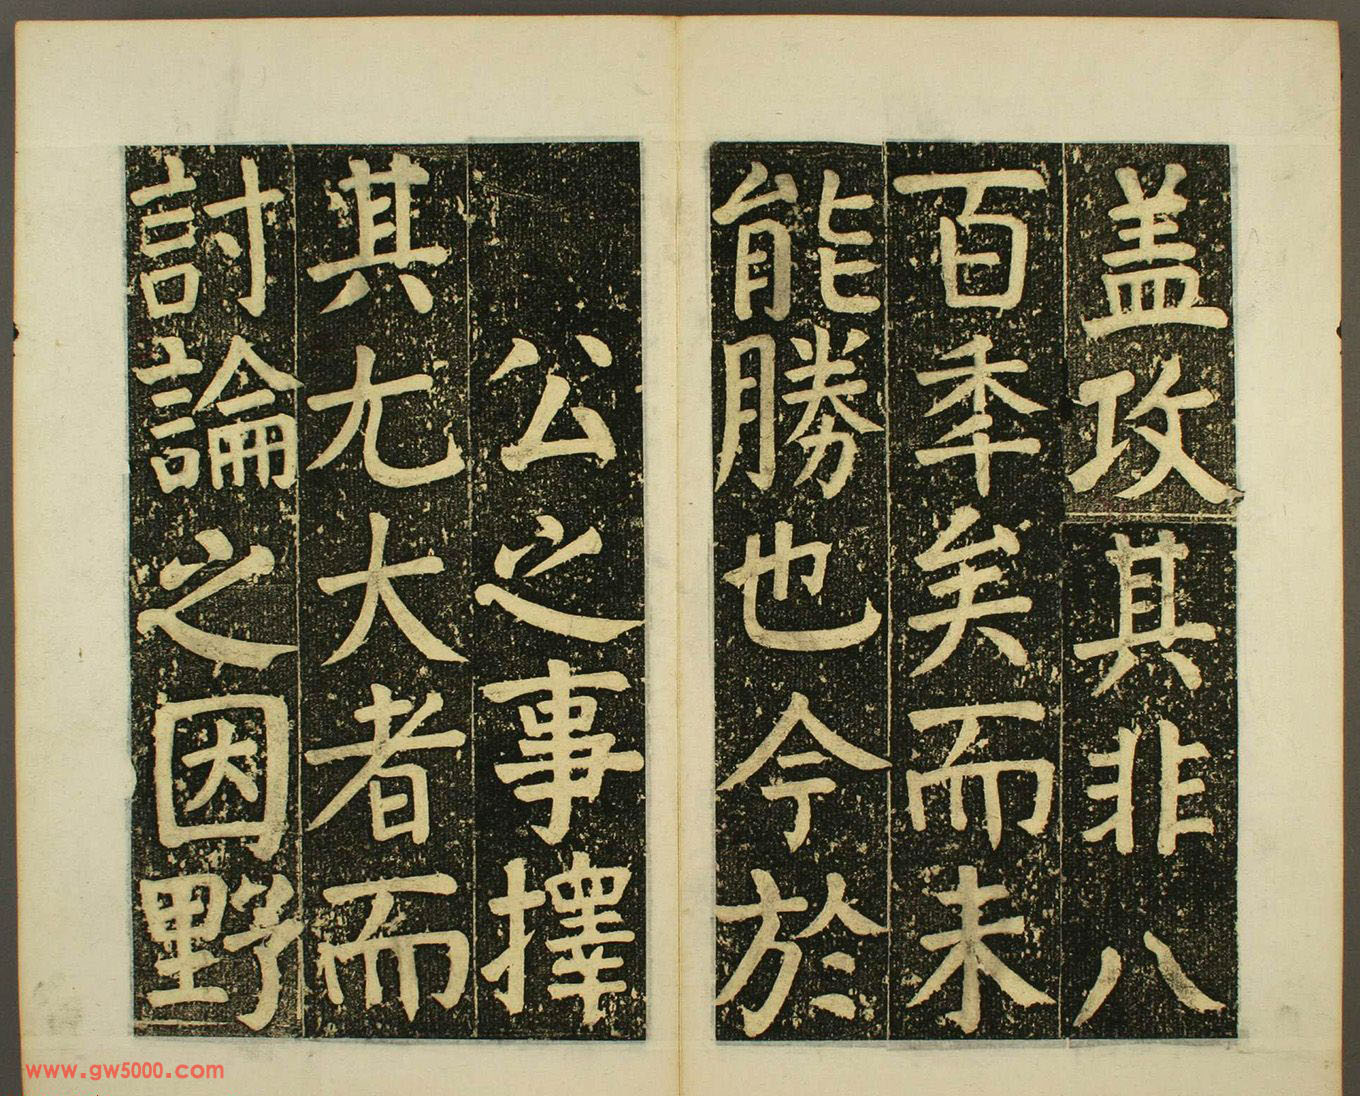 盖攻其非八
百秊矣而未
能勝也今於
公之事擇
其尢大者而
討論之因野
www.gw5000.com